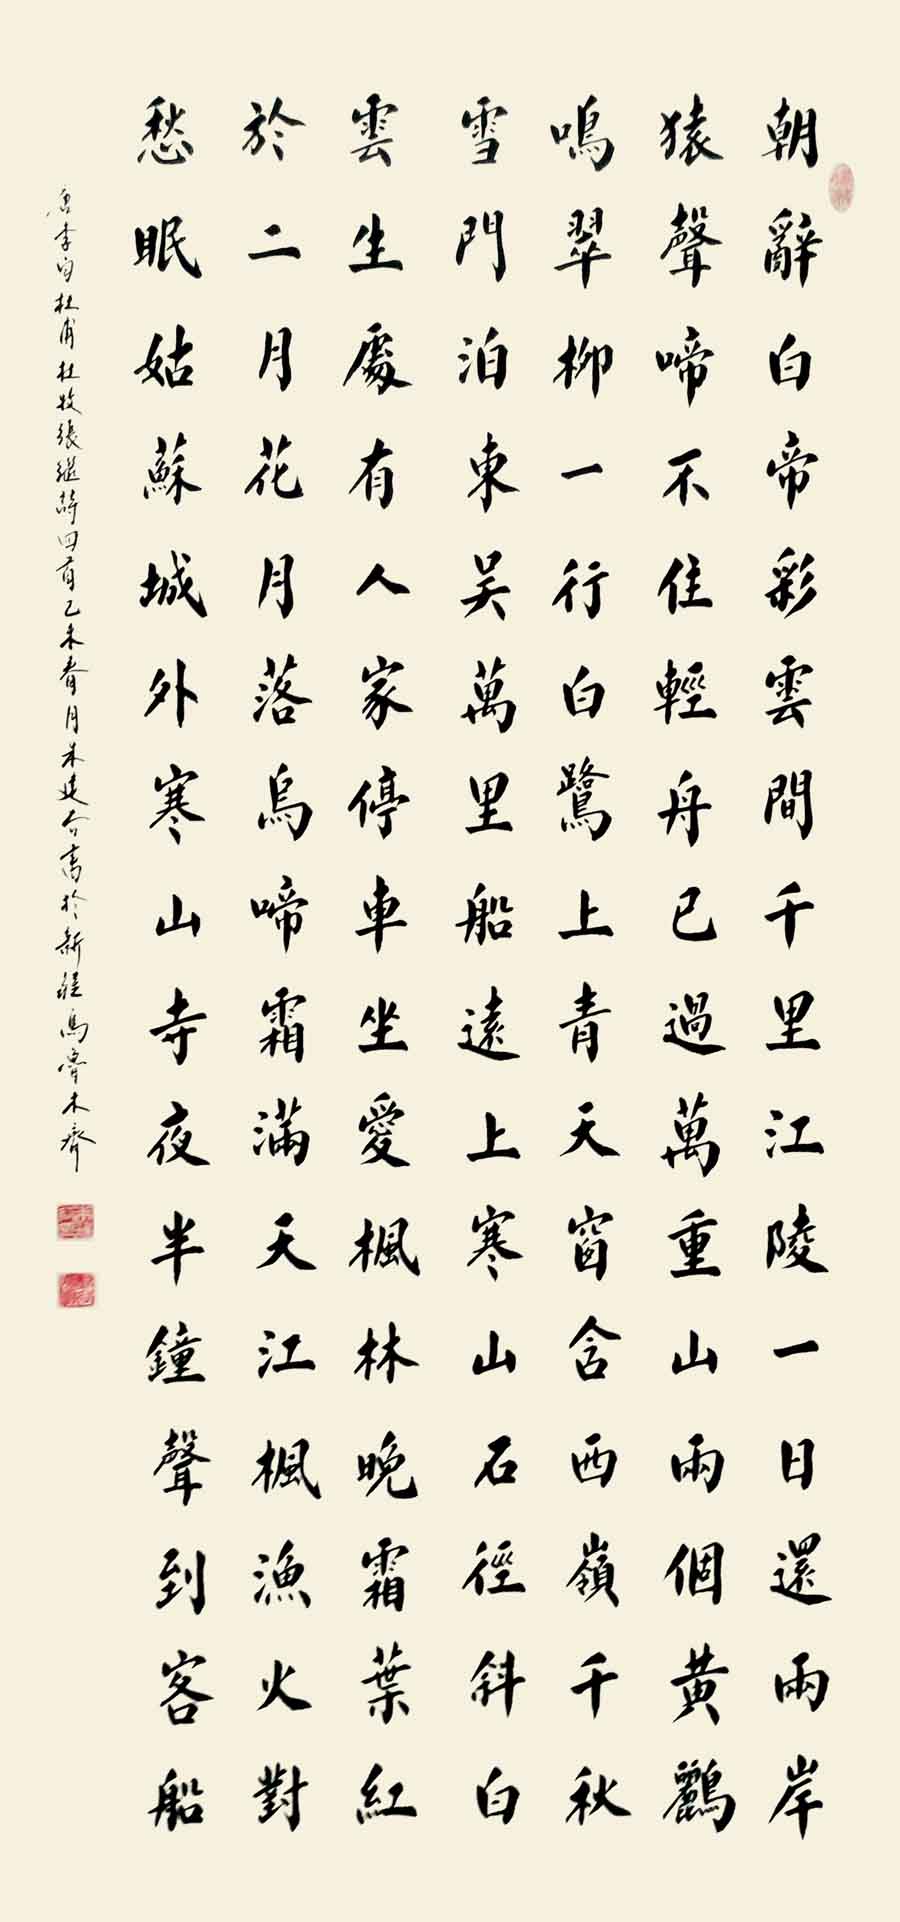 朝辭白帝彩雲間千里江陵一日還兩岸
猿聲啼不住輕舟已過萬重山兩個黃鸝
鳴翠柳一行白鷺上青天窗含西嶺千秋
雪門泊東吴萬里船遠上寒山石徑斜白
雲生處有人家停車坐愛楓林晚霜葉紅
於二月花月落烏啼霜滿天江楓漁火對
愁眠姑蘇城外寒山寺夜半鐘聲到客船
唐李白杜甫杜牧張繼詩四首乙未春月朱建書於新疆烏魯木齊